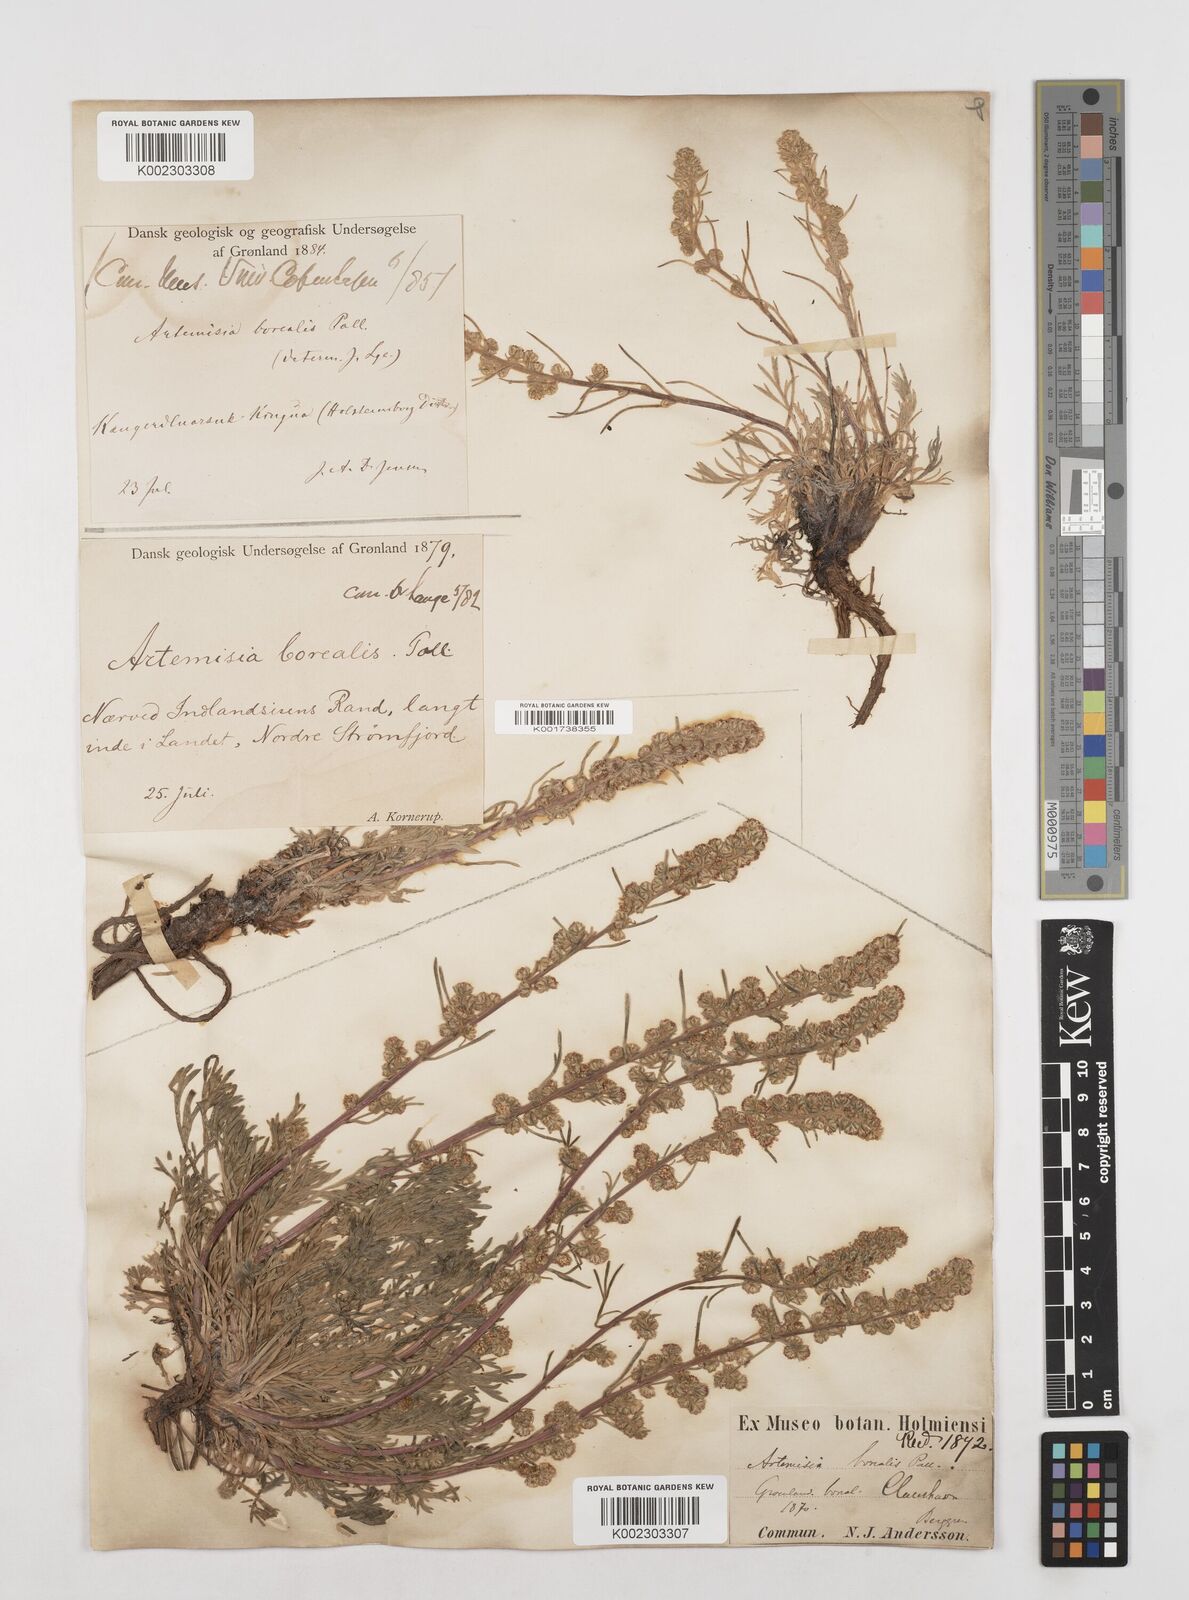 ROYAL BOTANIC GARDENS KEW
K002303308
Dansk geologisk og geografisk Undersøgelse
af Grønland 1884.
Univ 6/85
Artemisia borealis Pall.
(determ. J. Lge.)
Kangerdluarsuk-Kingua (Holstensborg
J. A. D. Jensen
23 Jul.
Dansk geologisk Undersøgelse af Grønland 1879.
Lange 5/82
Artemisia borealis. Pall.
Nærved Indlandsisens Rand, langt
inde i Landet, Nordre Strømfjord
25. Juli.
A. Kornerup.
ROYAL BOTANIC GARDENS KEW
K001738355
Ex Museo botan. Holmiensi
Recd. 1872.
Artemisia borealis Pall.
Grönland. boreal. Claushavn
1870.
Berggren
Commun. N. J. Andersson.
ROYAL BOTANIC GARDENS KEW
K002303307
Don Williams
M000975
centimetres
Royal Botanic Gardens
Kew
copyright reserved
0 1 2 3 4 5 6 7 8 9 10
cm